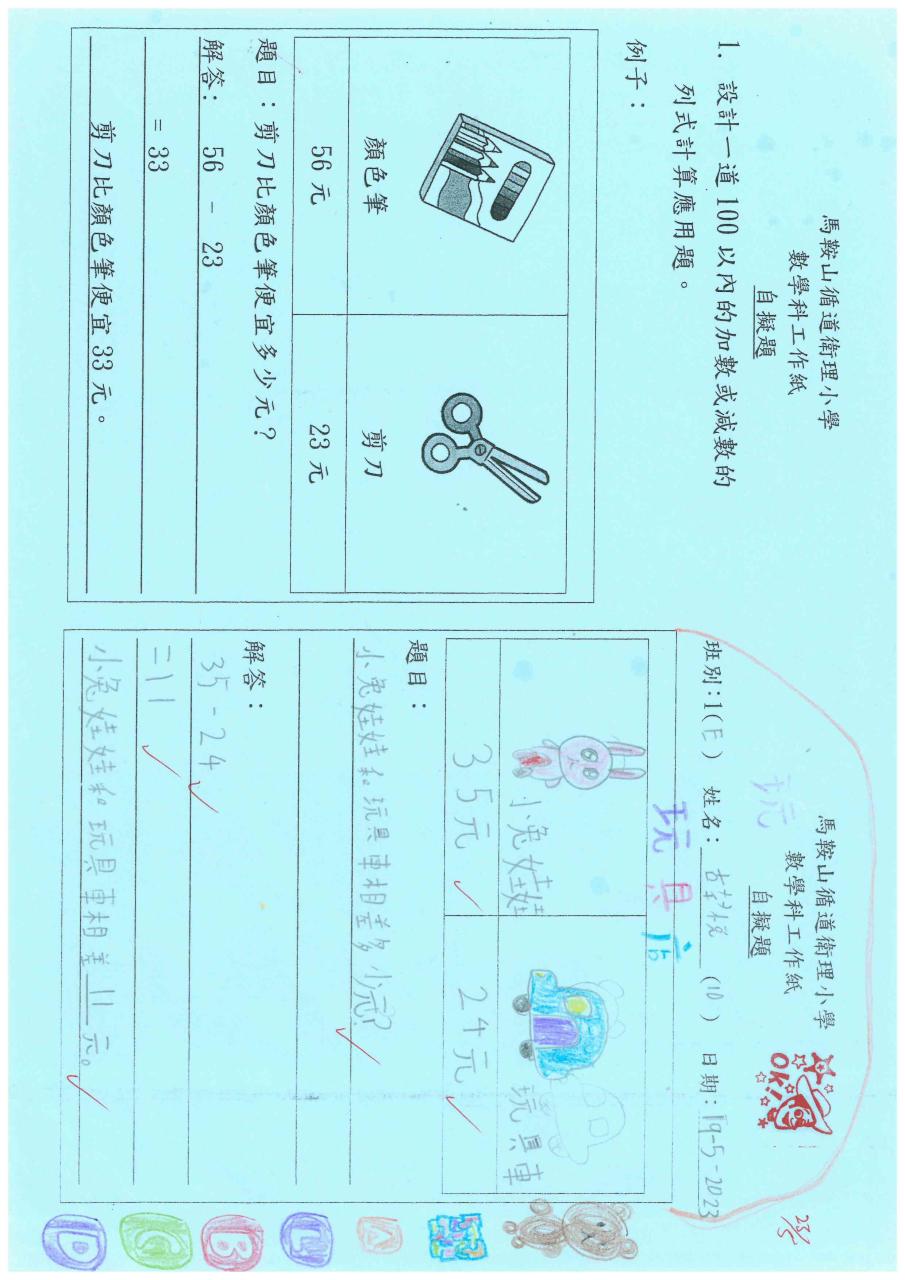 馬鞍山循道衛理小學
數學科工作紙
自擬題
1. 設計一道 100 以內的加數或減數的
列式計算應用題。
例子：
顏色筆
剪刀
56 元
23 元
題目：剪刀比顏色筆便宜多少元？
解答： 56 - 23
= 33
剪刀比顏色筆便宜 33 元。
馬鞍山循道衛理小學
數學科工作紙
自擬題
OK!
23/5
玩
班別:1(E) 姓名: (10) 日期:19-5-2023
玩具
小兔娃娃
玩具車
35元
24元
題目：
小兔娃娃和玩具車相差多少元?
解答：
35-24
=11
小兔娃娃和玩具車相差11元。
A
B
C
D